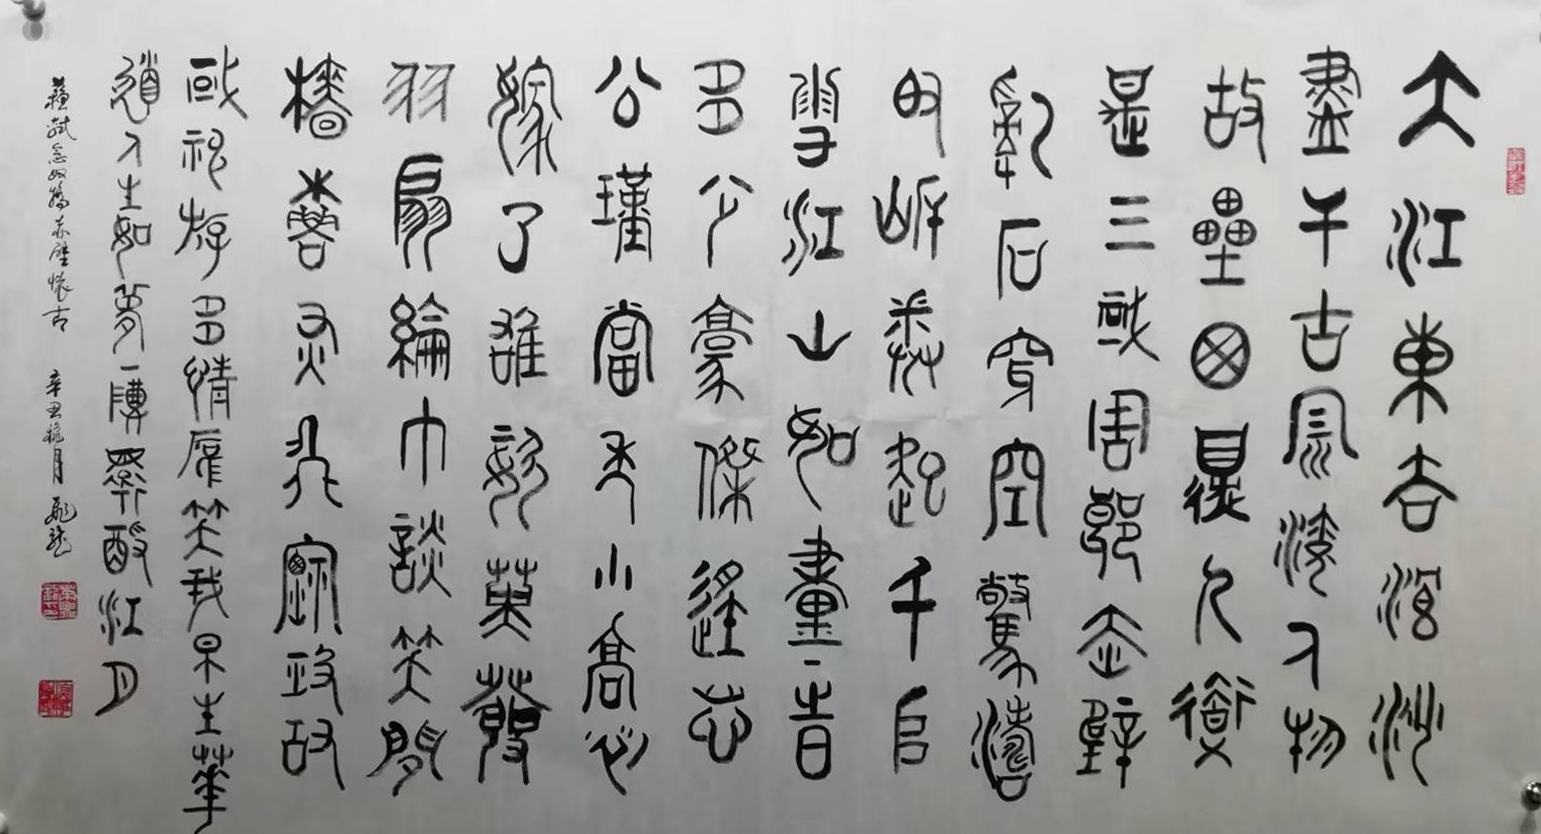 大江東去浪淘
盡千古風流人物
故壘西邊人道
是三國周郎赤壁
亂石穿空驚濤
拍岸捲起千堆
雪江山如畫一時
多少豪傑遙想
公瑾當年小喬初
嫁了雄姿英發
羽扇綸巾談笑間
檣櫓灰飛煙滅故
國神遊多情應笑我早生華
髮人生如夢一尊還酹江月
蘇軾念奴嬌赤壁懷古 辛丑秋月